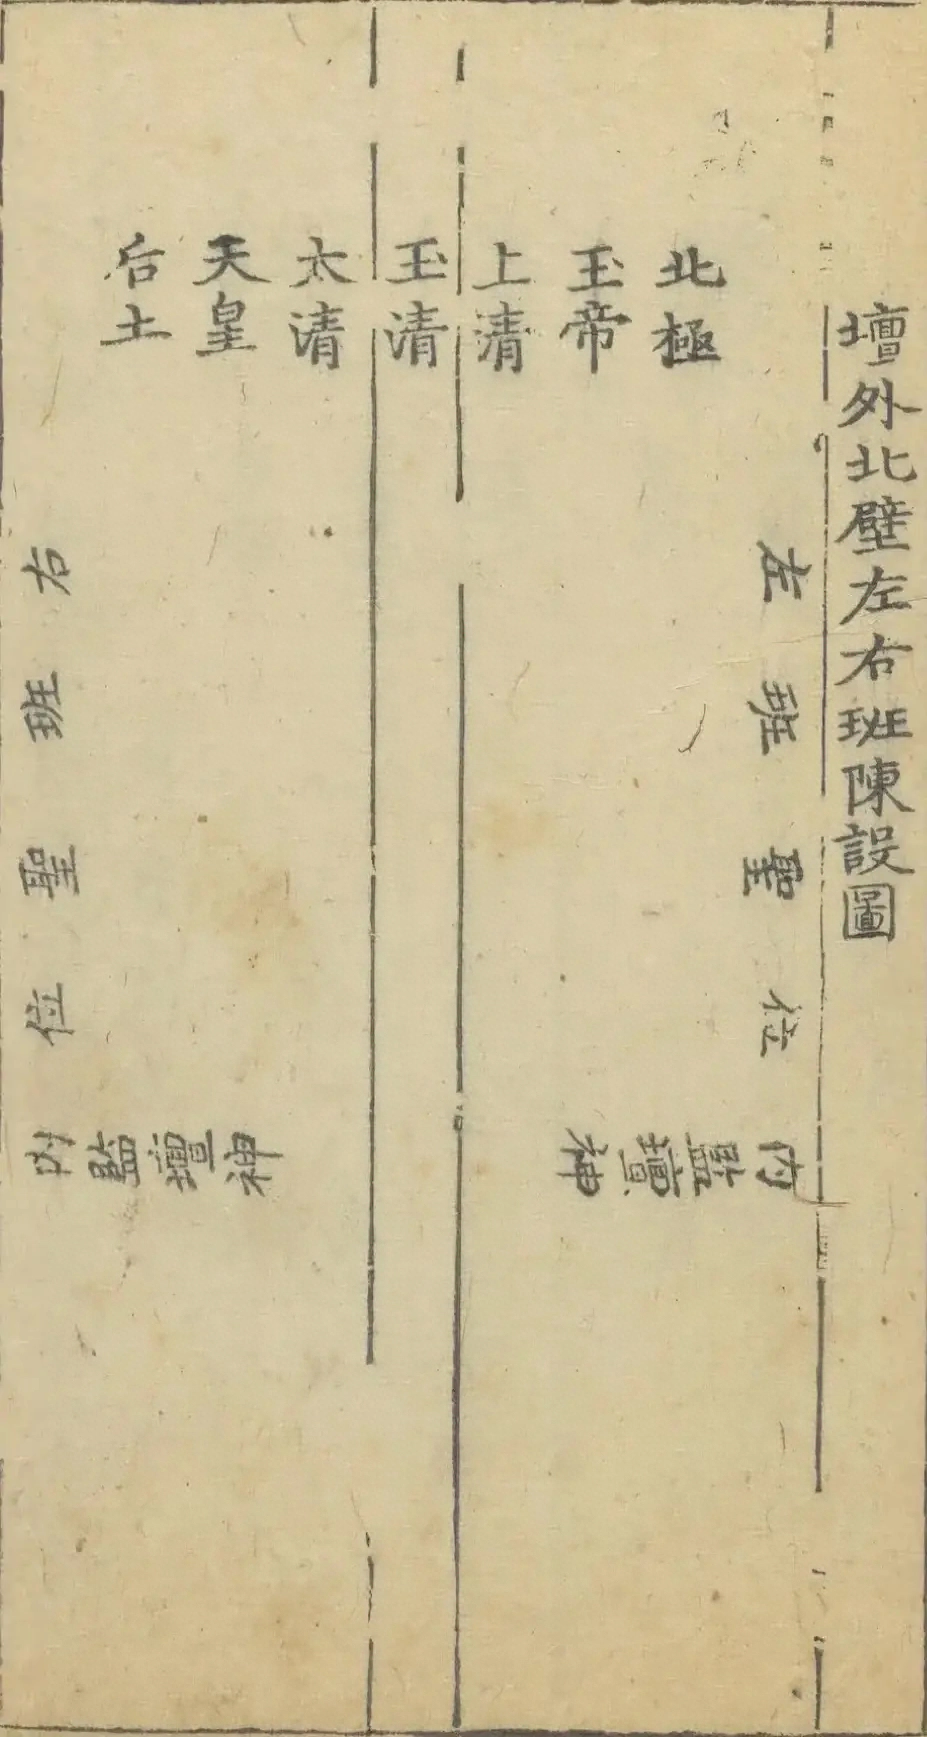 壇外北壁左右班陳設圖
北極
玉帝
上清
玉清
太清
天皇
后土
左班聖位
內監壇神
右班聖位
內監壇神